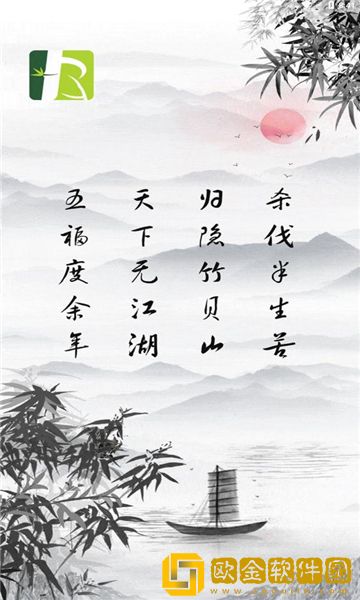 杀伐半生苦
归隐竹贝山
天下无江湖
五福度余年
欧金软件园